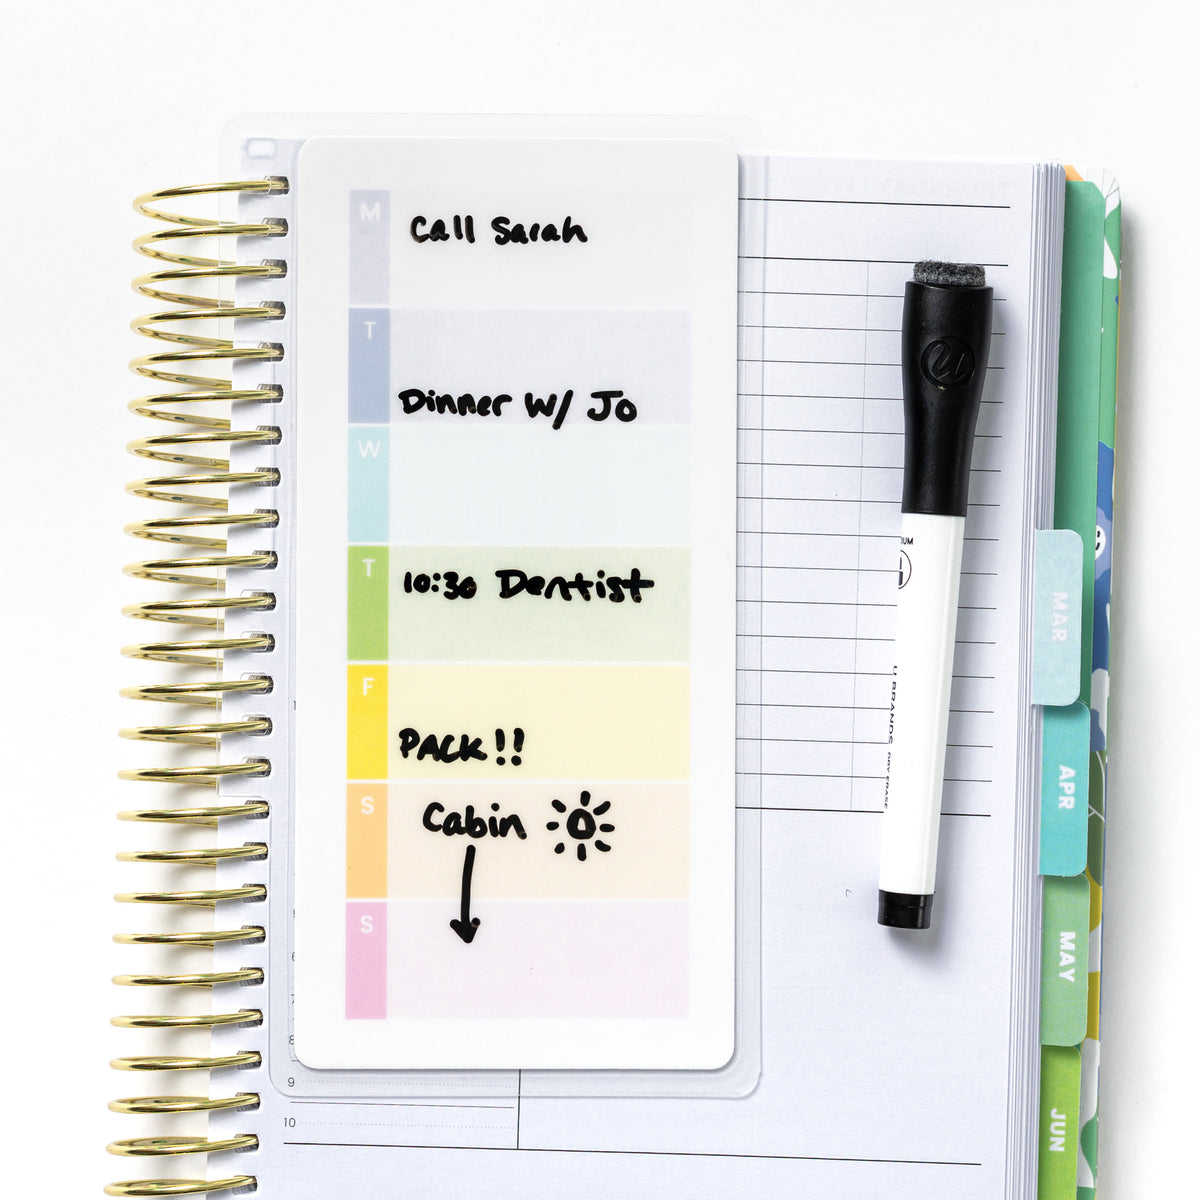 M
Call Sarah
T
Dinner W/ Jo
W
T
10:30 Dentist
F
PACK!!
S
Cabin
S
9
10
U BRANDS DRY ERASE
MAR
APR
MAY
JUN